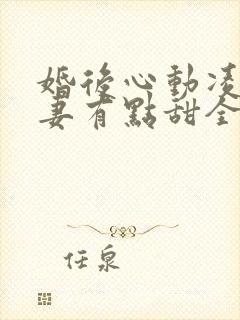 婚後心動凌
妻有點甜全
任泉